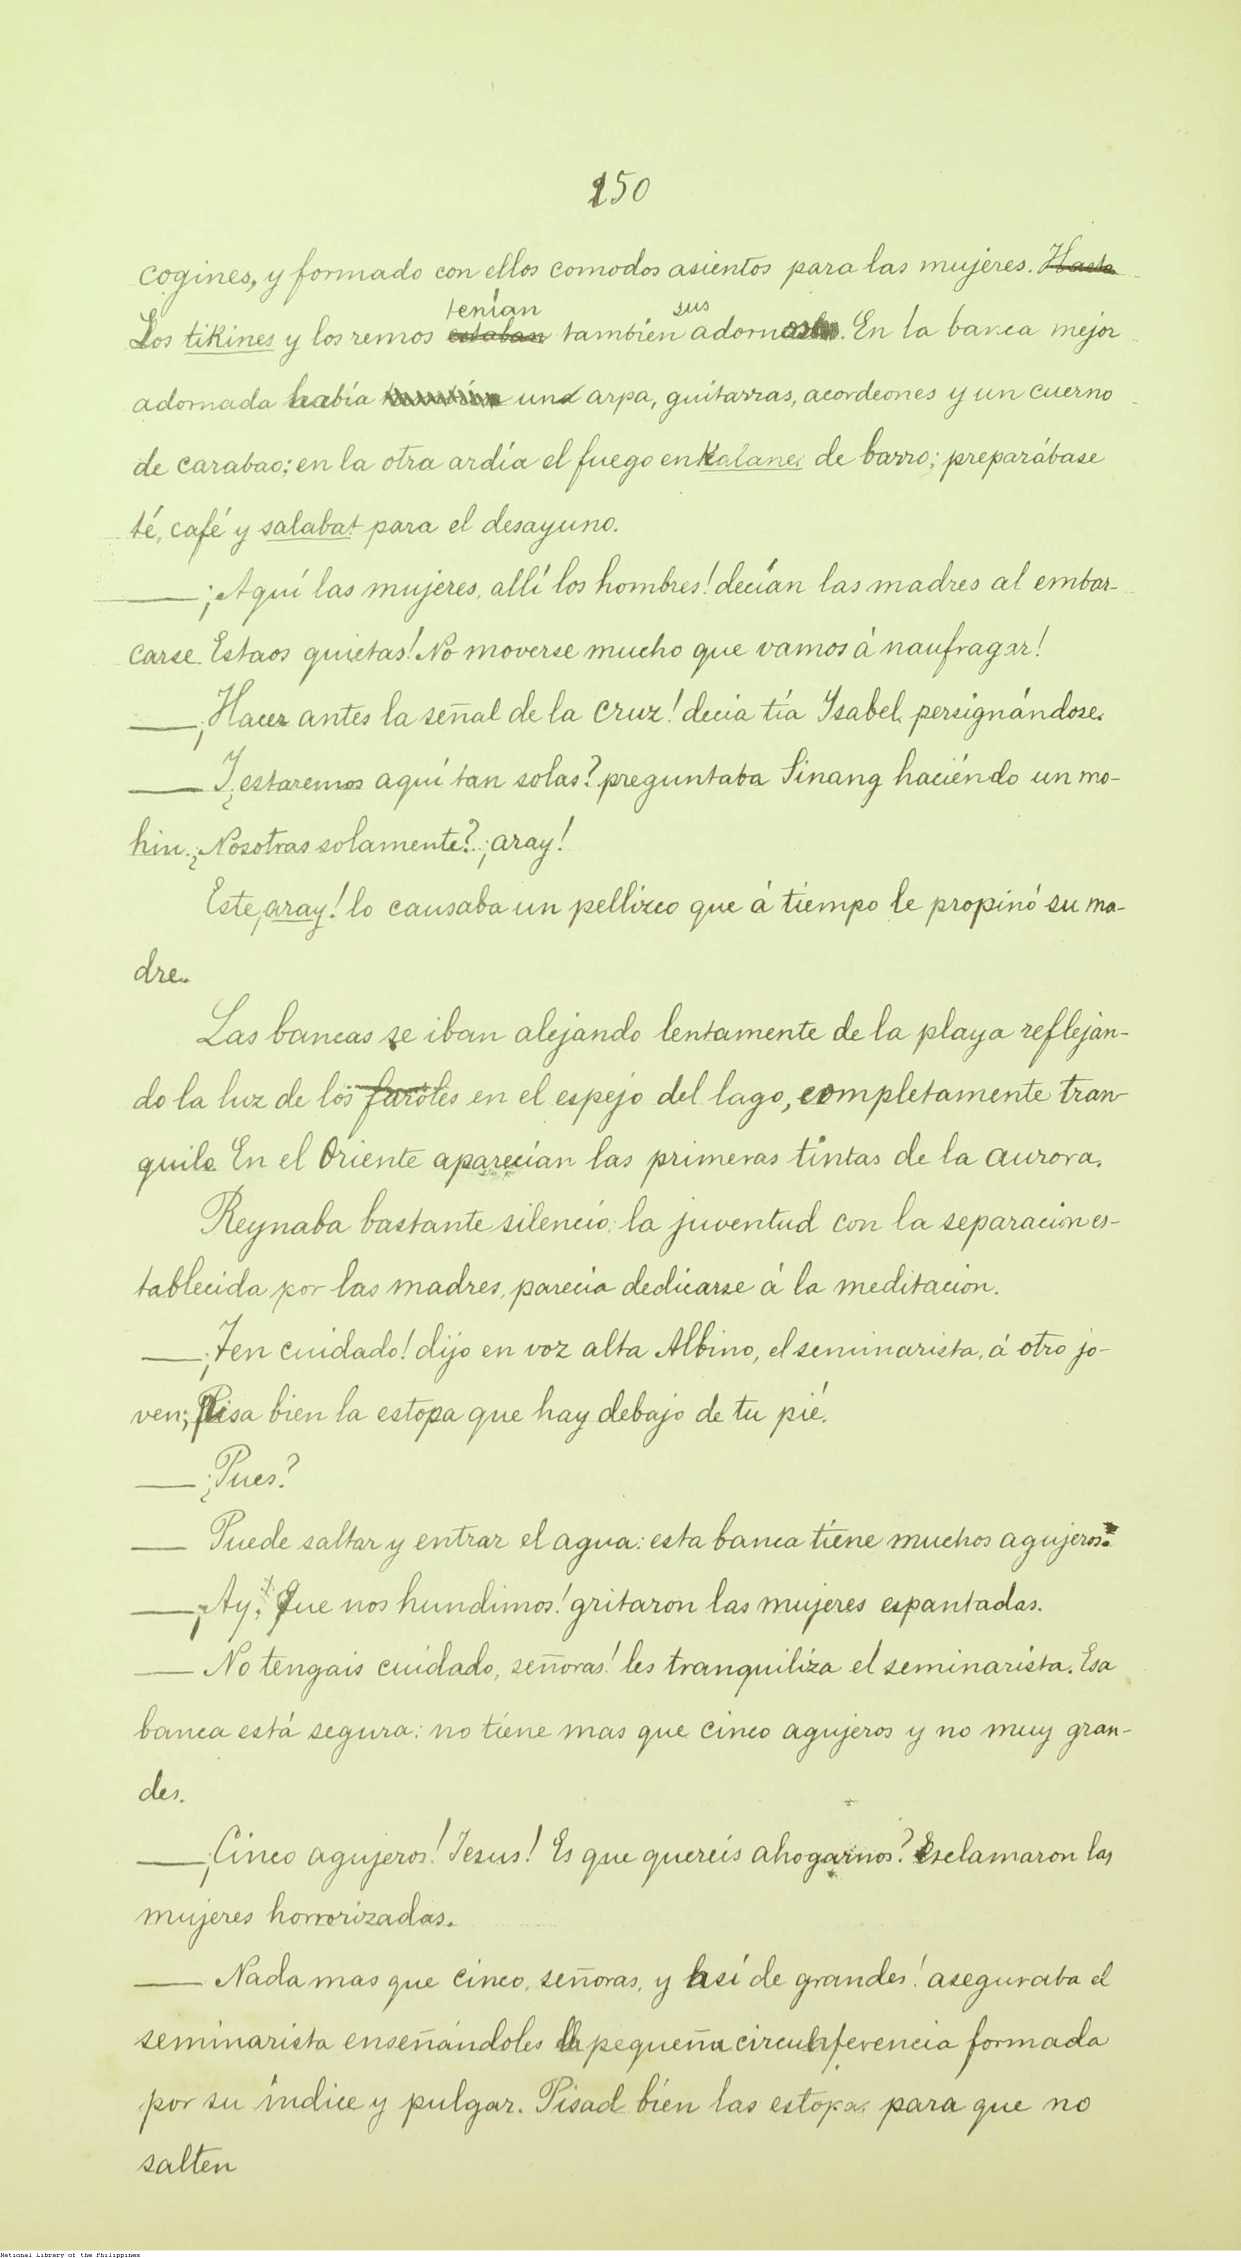 150
cogines, y formado con ellos comodos asientos para las mujeres. Hasta
tenían sus
Los tikines y los remos estaban también adornos. En la banca mejor
adornada había un arpa, guitarras, acordeones y un cuerno
de carabao; en la otra ardía el fuego en kalanes de barro; preparábase
té, café y salabat para el desayuno.
—¡Aquí las mujeres, allí los hombres! decían las madres al embar-
carse. Estaos quietas! No moverse mucho que vamos á naufragar!
—¡Hacer antes la señal de la cruz! decia tía Ysabel, persignándose.
—Y ¿estaremos aquí tan solas? preguntaba Sinang haciéndo un mo-
hin. ¿Nosotras solamente? ¡aray!
Este ¡aray! lo causaba un pellizco que á tiempo le propinó su ma-
dre.
Las bancas se iban alejando lentamente de la playa reflejan-
do la luz de los faroles en el espejo del lago, completamente tran-
quilo. En el Oriente aparecían las primeras tintas de la aurora.
Reynaba bastante silencio: la juventud con la separacion es-
tablecida por las madres, parecia dedicarse á la meditacion.
—¡Ten cuidado! dijo en voz alta Albino, el seminarista, á otro jo-
ven; pisa bien la estopa que hay debajo de tu pié.
—¿Pues?
— Puede saltar y entrar el agua: esta banca tiene muchos agujeros.
—¡Ay, que nos hundimos! gritaron las mujeres espantadas.
— No tengais cuidado, señoras! les tranquiliza el seminarista. Esa
banca está segura: no tiene mas que cinco agujeros y no muy gran-
des.
—¡Cinco agujeros! Jesus! Es que quereis ahogarnos? Esclamaron las
mujeres horrorizadas.
— Nada mas que cinco, señoras, y así de grandes! aseguraba el
seminarista enseñándoles la pequeña circunferencia formada
por su índice y pulgar. Pisad bien las estopas para que no
salten
National Library of the Philippines